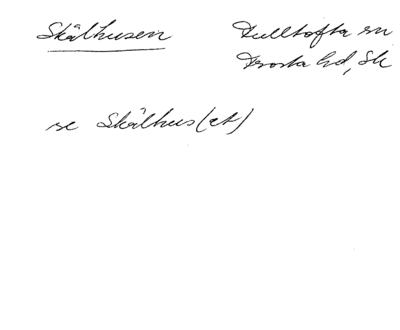 Skålhusen
Fulltofta sn
Frosta hd, Sk
se Skålhus(et)